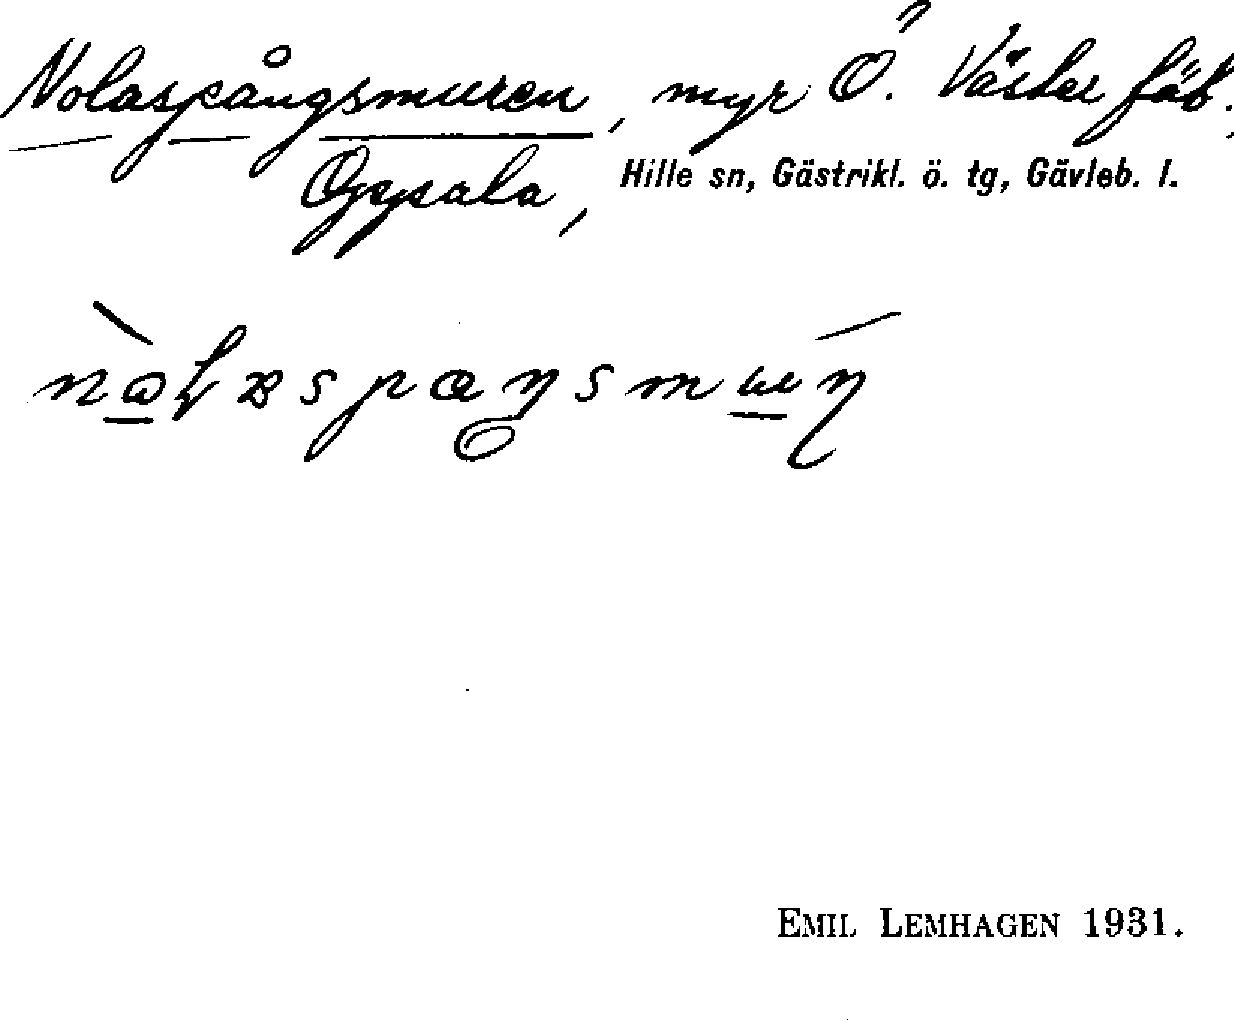 Nolaspångsmuren, myr Ö. Väster fäb.,
Oppsala, Hille sn, Gästrikl. ö. tg, Gävleb. l.
EMIL LEMHAGEN 1931.